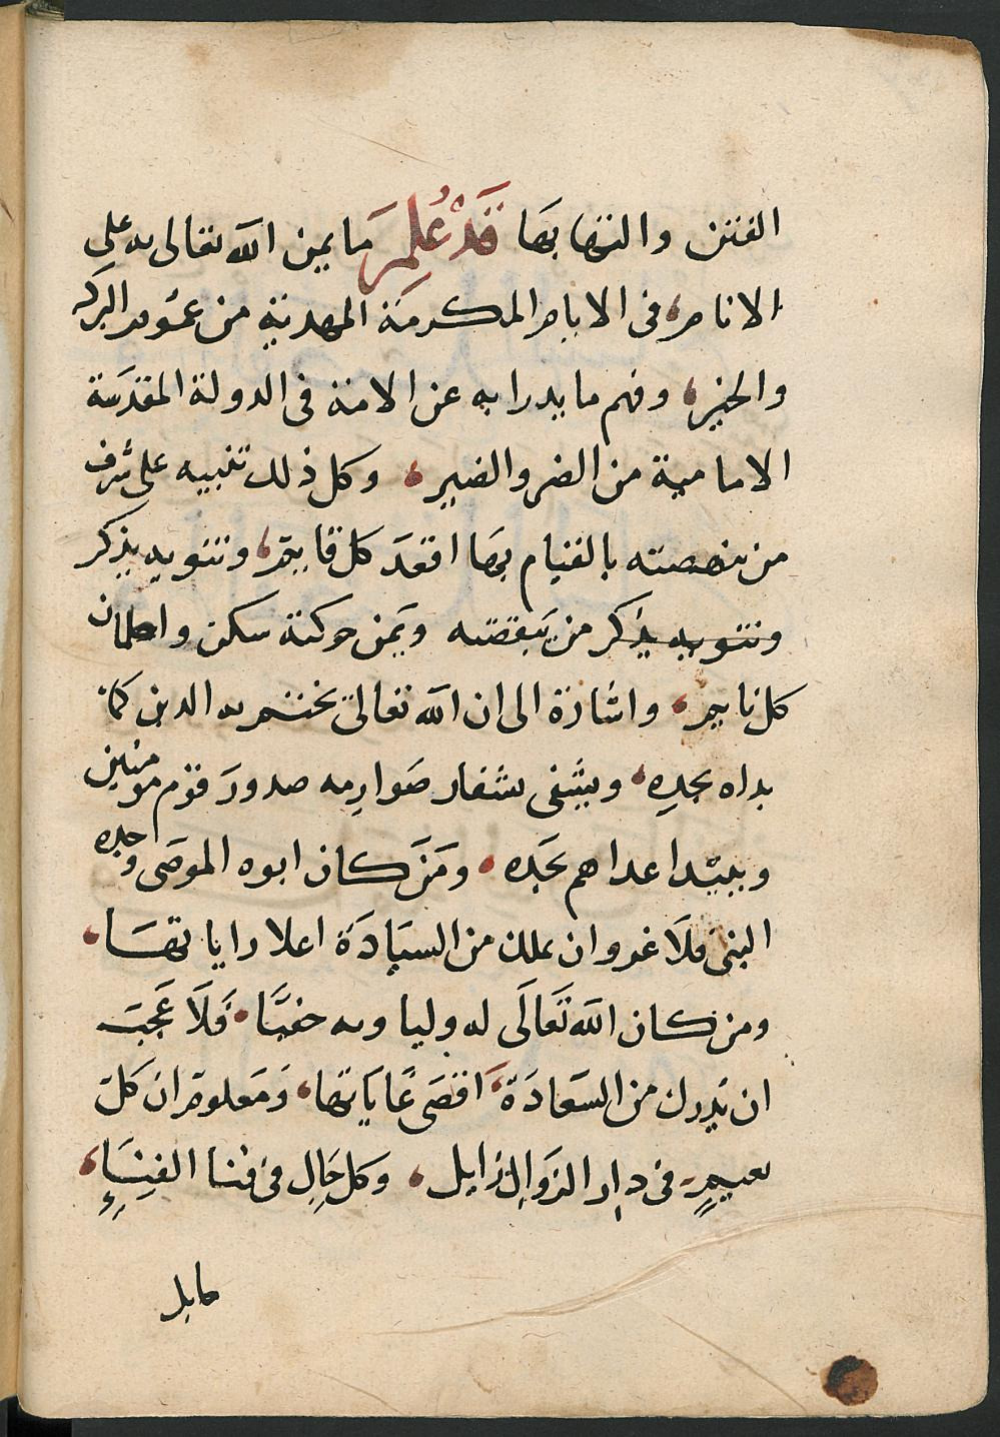 الفتن والتهابها قَدْ عُلِمَ ما يمن الله تعالى به على
الانام في الايام المكرمة المهدية من عموم البركة
والخير، وفهم ما يدرا به عن الامة في الدولة المقدسة
الامامية من الضر والضير، وكل ذلك تنبيه على شرف
من ينهضته بالقيام بها اقعد كل قايم، وتنويه بذكر
وتنويه بذكر من بيقضته ويمن حركته سكن واطمان
كل نايم، واشارة الى ان الله تعالى يختم به الدين كما
بداه بجده، ويشفي بشفار صوارمه صدور قوم مومنين
ويبيد اعداهم بحده، ومن كان ابوه الوصى وجده
النبى فلا غرو ان يملك من السيادة اعلا راياتها،
ومن كان الله تعالى له وليا وبه حفيا، فلا عجب
ان يدرك من السعادة، اقصى غاياتها، ومعلوم ان كل
نعيم في دار الزوال زايل، وكل حال في فنا الفناء
مايل